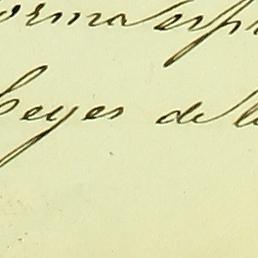 orma espr
Leyes de l